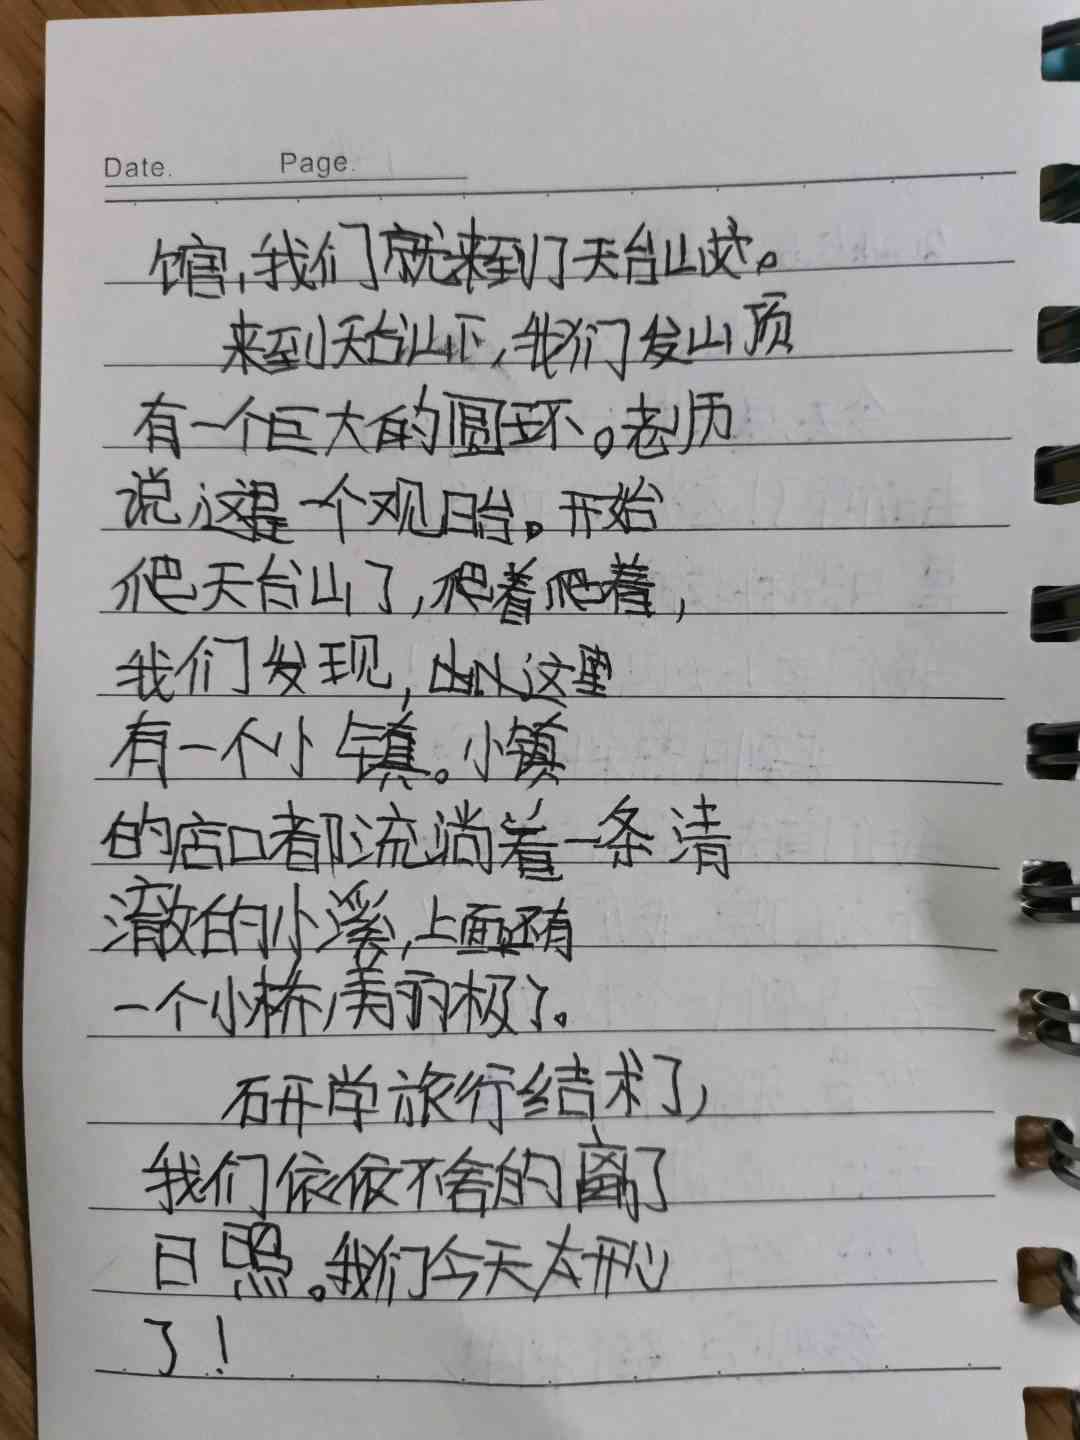 Date. Page.
馆,我们就来到了天台山
来到天台山下,我们发山顶
有一个巨大的圆环。老师
说,这是一个观日台。开始
爬天台山了,爬着爬着,
我们发现,这里
有一个小镇。小镇
的店口都流淌着一条清
澈的小溪,上面还有
一个小桥,美丽极了。
研学旅行结术了,
我们依依不舍的离了
日照。我们今天太开心
了!